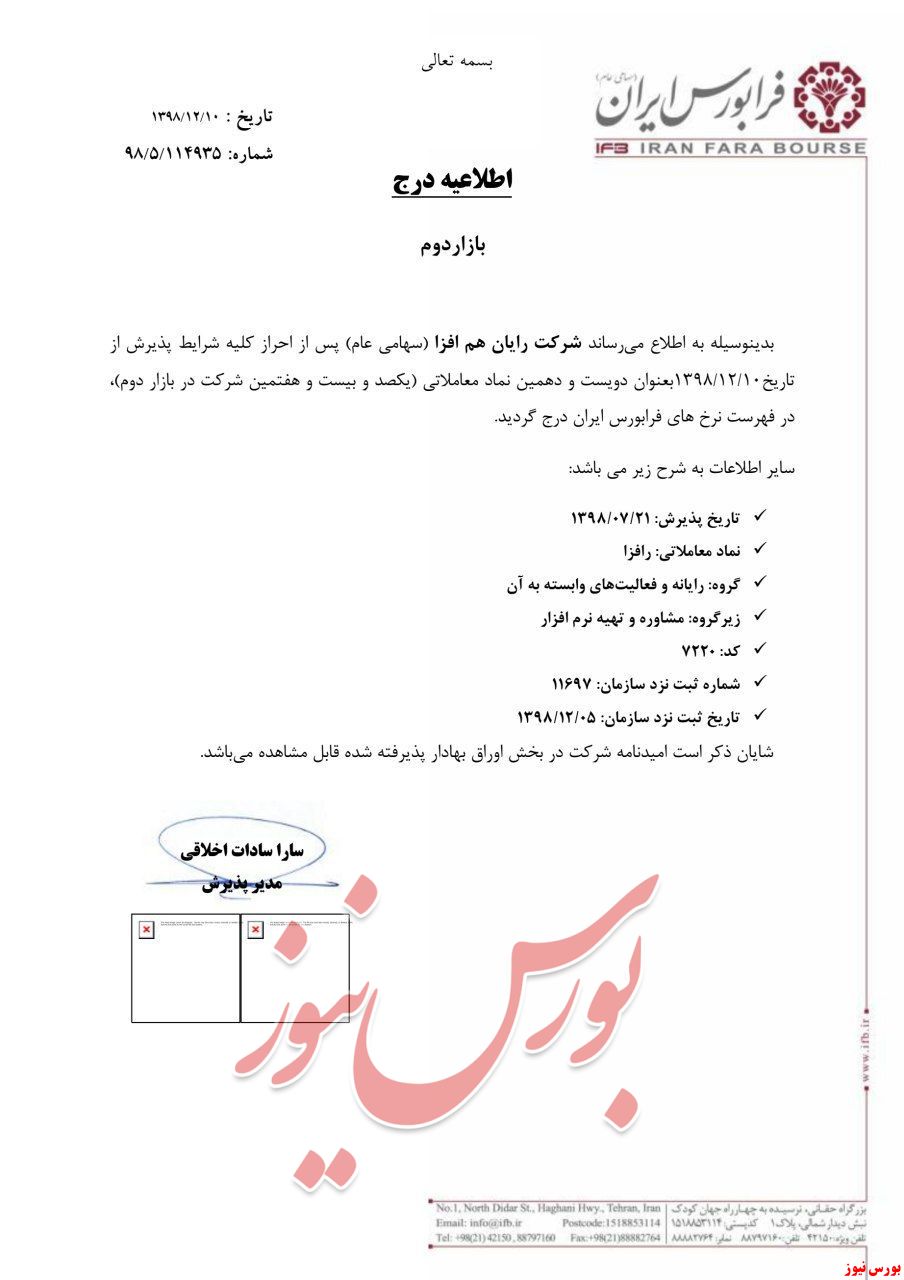 بسمه تعالی
(سهامی عام)
فرابورس ایران
IFB IRAN FARA BOURSE
تاریخ : ۱۳۹۸/۱۲/۱۰
شماره: ۹۸/۵/۱۱۴۹۳۵
اطلاعیه درج
بازاردوم
بدینوسیله به اطلاع می‌رساند شرکت رایان هم افزا (سهامی عام) پس از احراز کلیه شرایط پذیرش از
تاریخ۱۳۹۸/۱۲/۱۰بعنوان دویست و دهمین نماد معاملاتی (یکصد و بیست و هفتمین شرکت در بازار دوم)،
در فهرست نرخ های فرابورس ایران درج گردید.
سایر اطلاعات به شرح زیر می باشد:
✓ تاریخ پذیرش: ۱۳۹۸/۰۷/۲۱
✓ نماد معاملاتی: رافزا
✓ گروه: رایانه و فعالیت‌های وابسته به آن
✓ زیرگروه: مشاوره و تهیه نرم افزار
✓ کد: ۷۲۲۰
✓ شماره ثبت نزد سازمان: ۱۱۶۹۷
✓ تاریخ ثبت نزد سازمان: ۱۳۹۸/۱۲/۰۵
شایان ذکر است امیدنامه شرکت در بخش اوراق بهادار پذیرفته شده قابل مشاهده می‌باشد.
سارا سادات اخلاقی
مدیر پذیرش
بورس نیوز
www.ifb.ir
بزرگراه حقـانی، نرسیـده به چهـارراه جهان کودک
نبش دیدار شمالی، پلاک۱ کدپستی: ۱۵۱۸۸۵۳۱۱۴
تلفن ویژه: ۴۲۱۵۰ تلفن: ۸۸۷۹۷۱۶۰ نمابر: ۸۸۸۸۲۷۶۴
No.1, North Didar St., Haghani Hwy., Tehran, Iran
Email: info@ifb.ir Postcode:1518853114
Tel: +98(21) 42150 , 88797160 Fax:+98(21)88882764
بورس نیوز